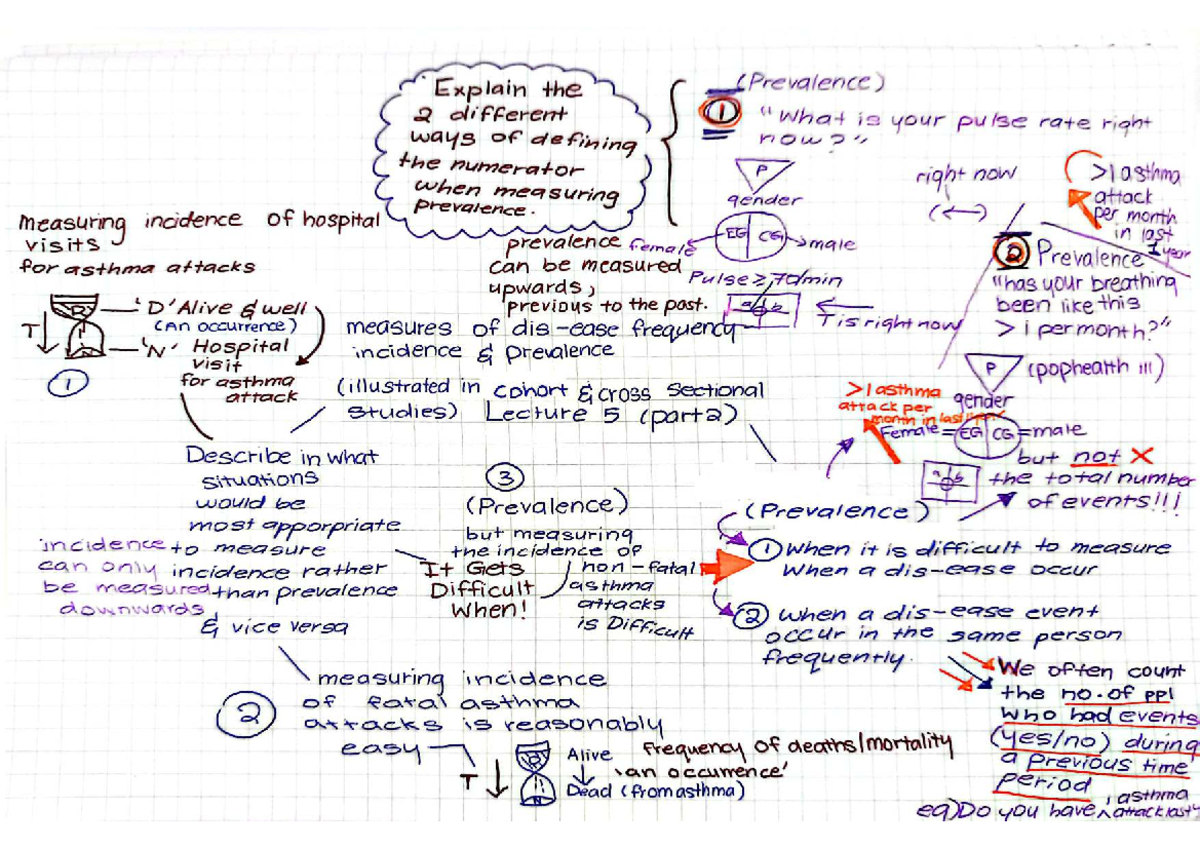 Explain the
2 different
ways of defining
the numerator
when measuring
prevalence.
(Prevalence)
1
"What is your pulse rate right
now?"
P
gender
EG CG
female
male
Pulse ≥ 70/min
a b
T is right now
right now
(↔)
>1 asthma
attack
per month
in last
1 year
2 Prevalence
"has your breathing
been like this
> 1 per month?"
P (pophealth 111)
gender
Female = EG CG = male
>1 asthma
attack per
month in last
a b
but not X
the total number
of events!!!
measuring incidence of hospital
visits
for asthma attacks
T
'D' Alive & well
(An occurrence)
'N' Hospital
visit
for asthma
attack
1
prevalence
can be measured
upwards,
previous to the past.
measures of dis-ease frequency
incidence & Prevalence
(illustrated in cohort & cross sectional
studies) Lecture 5 (part 2)
Describe in what
situations
would be
most apporpriate
to measure
incidence rather
than prevalence
& vice versa
incidence
can only
be measured
downwards,
3
(Prevalence)
but measuring
the incidence of
non-fatal
asthma
attacks
is Difficult
It Gets
Difficult
When!
(Prevalence)
1 When it is difficult to measure
when a dis-ease occur
2 when a dis-ease event
occur in the same person
frequently.
We often count
the no. of ppl
who had events
(yes/no) during
a previous time
period
eg) Do you have ^ asthma
attack last
2
measuring incidence
of fatal asthma
attacks is reasonably
easy
T
D
N
Alive
Dead (from asthma)
frequency of deaths/mortality
'an occurrence'